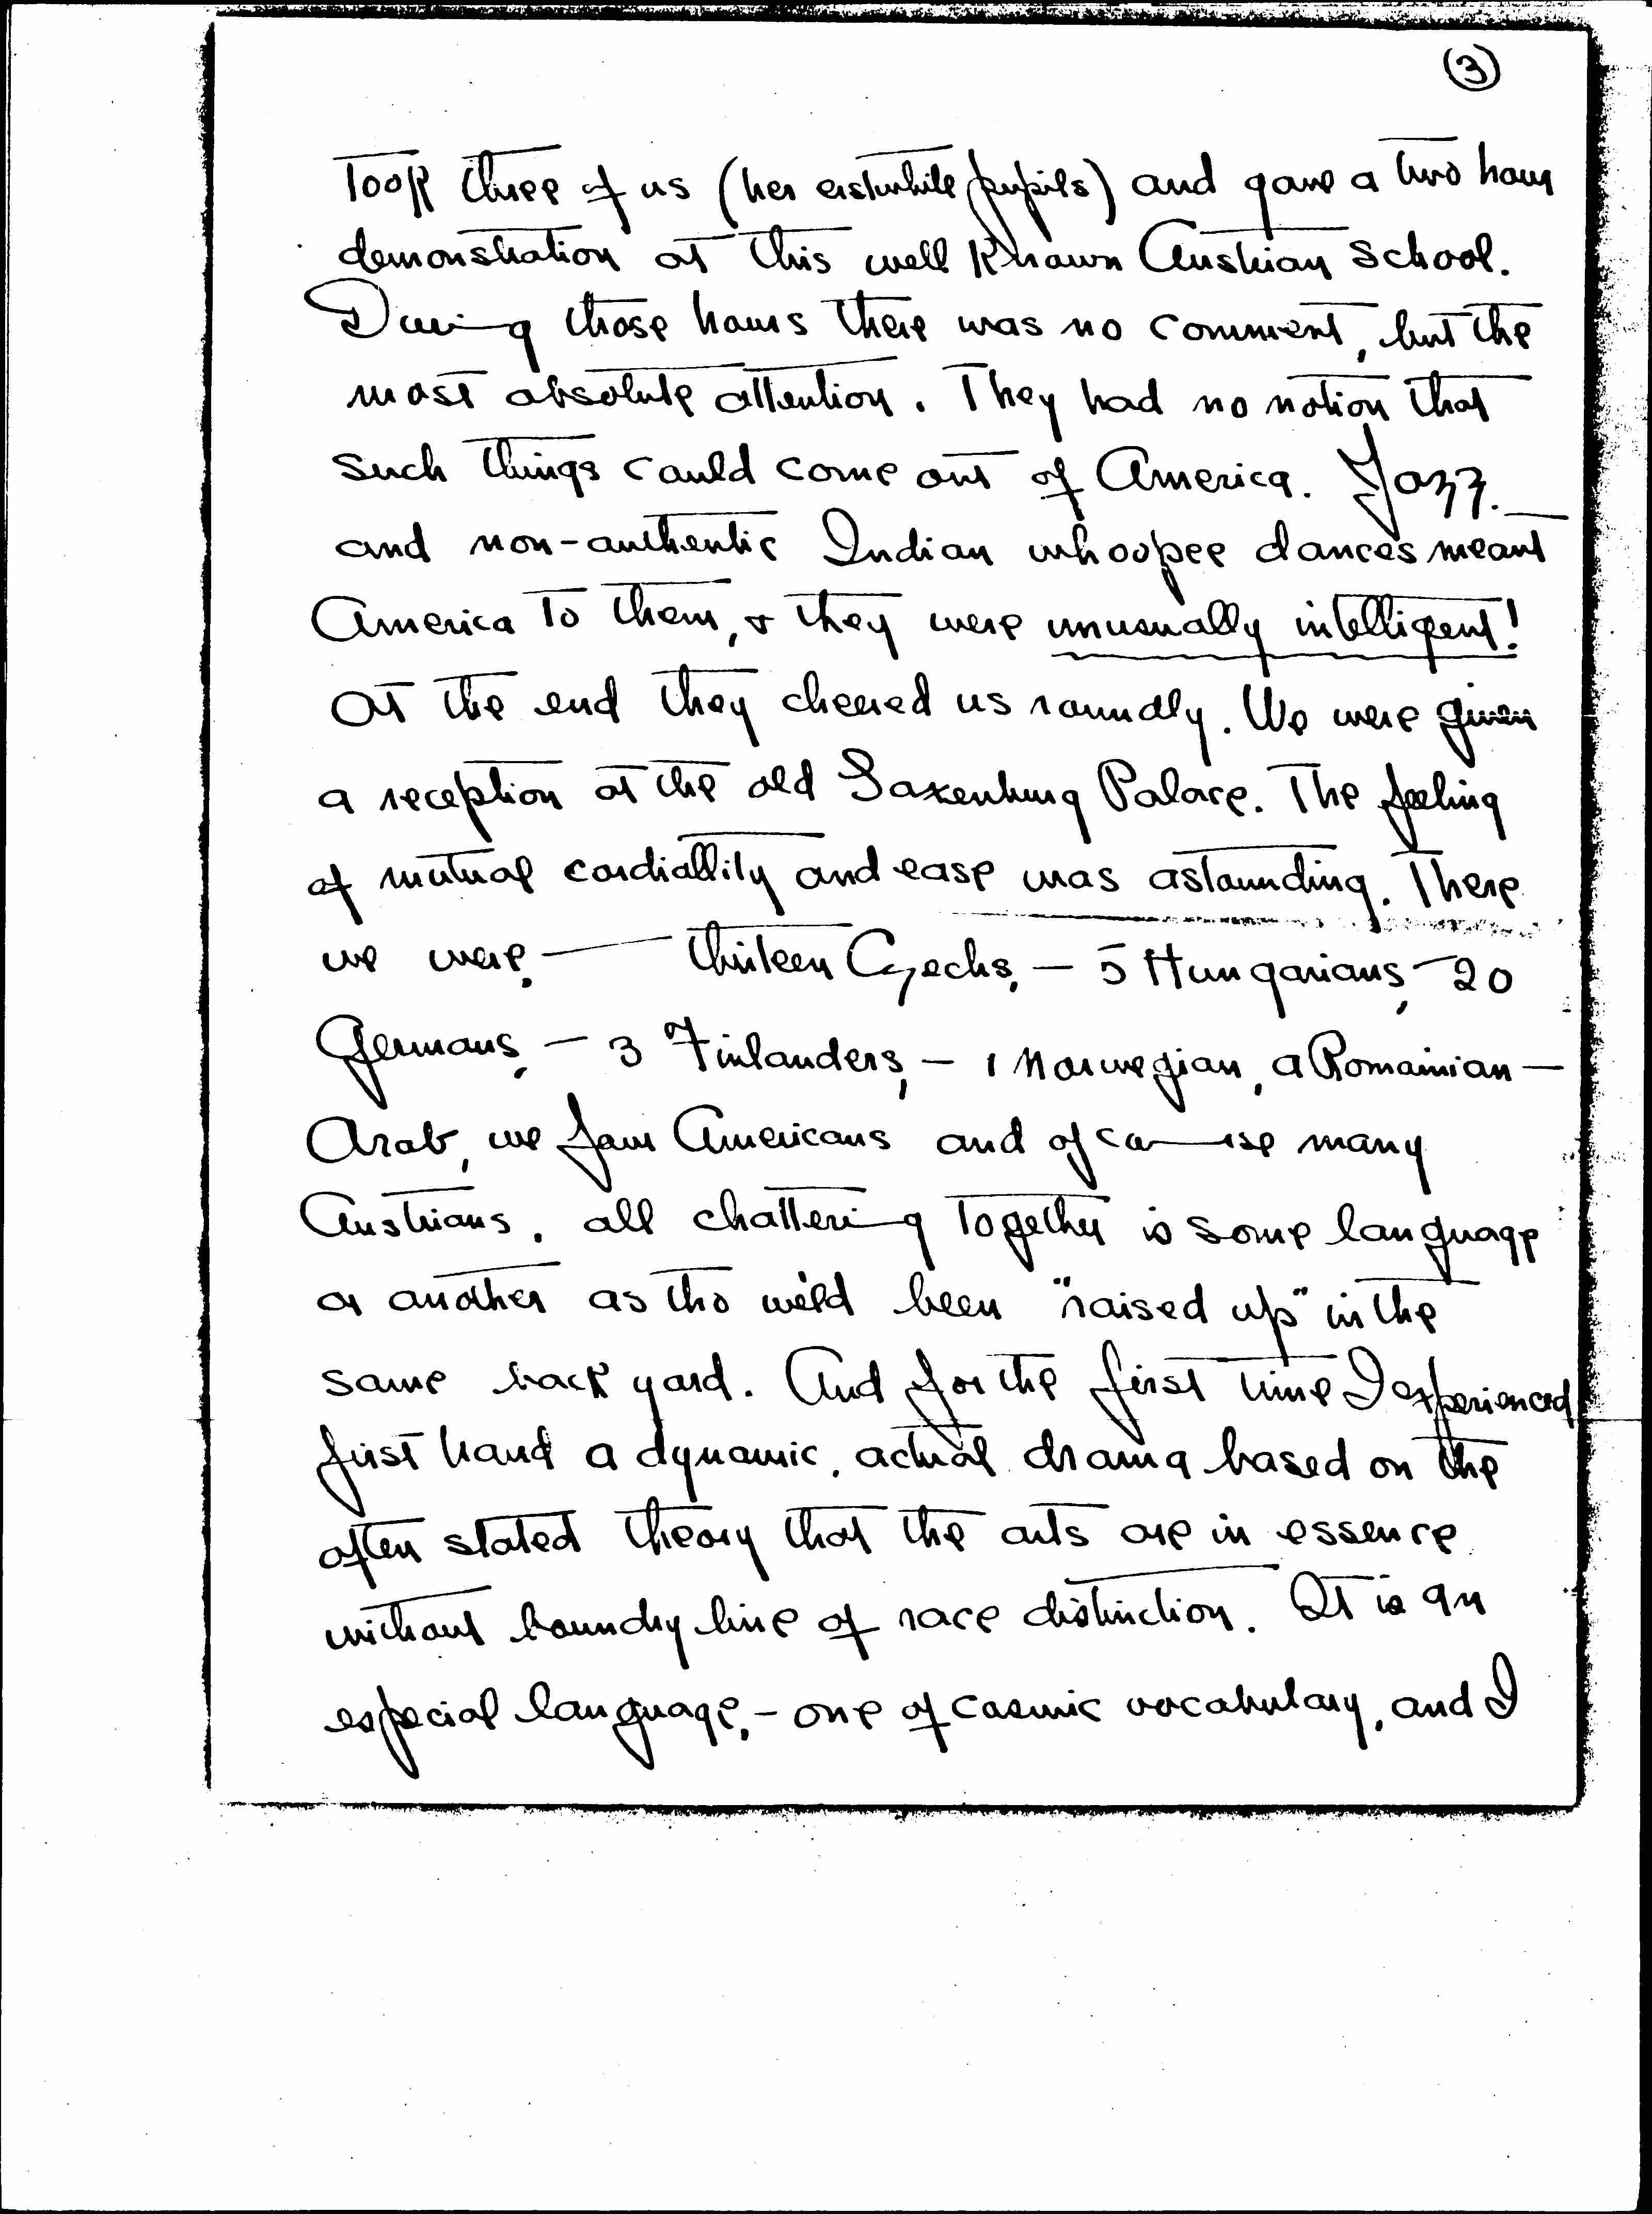 ③
took three of us (her erstwhile pupils) and gave a two hour
demonstration at this well known Austrian School.
During those hours there was no comment, but the
most absolute attention. They had no notion that
such things could come out of America. Jazz
and non-authentic Indian whoopee dances meant
America to them, & they were unusually intelligent!
At the end they cheered us roundly. We were given
a reception at the old Laxenburg Palace. The feeling
of mutual cordiallity and ease was astounding. There
we were, — thirteen Czechs, — 5 Hungarians, — 20
Germans, — 3 Finlanders, — 1 Norwegian, a Romainian —
Arab, we four Americans and of course many
Austrians, all chattering together is some language
or another as tho we'd been "raised up" in the
same back yard. And for the first time I experienced
first hand a dynamic, actual drama based on the
often stated theory that the arts are in essence
without boundry line of race distinction. It is an
especial language, - one of cosmic vocabulary, and I